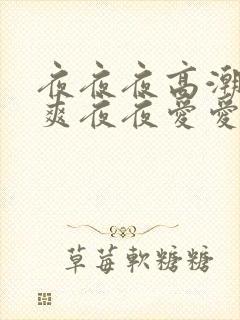 夜夜夜高潮
爽夜夜愛愛
草莓軟糖糖